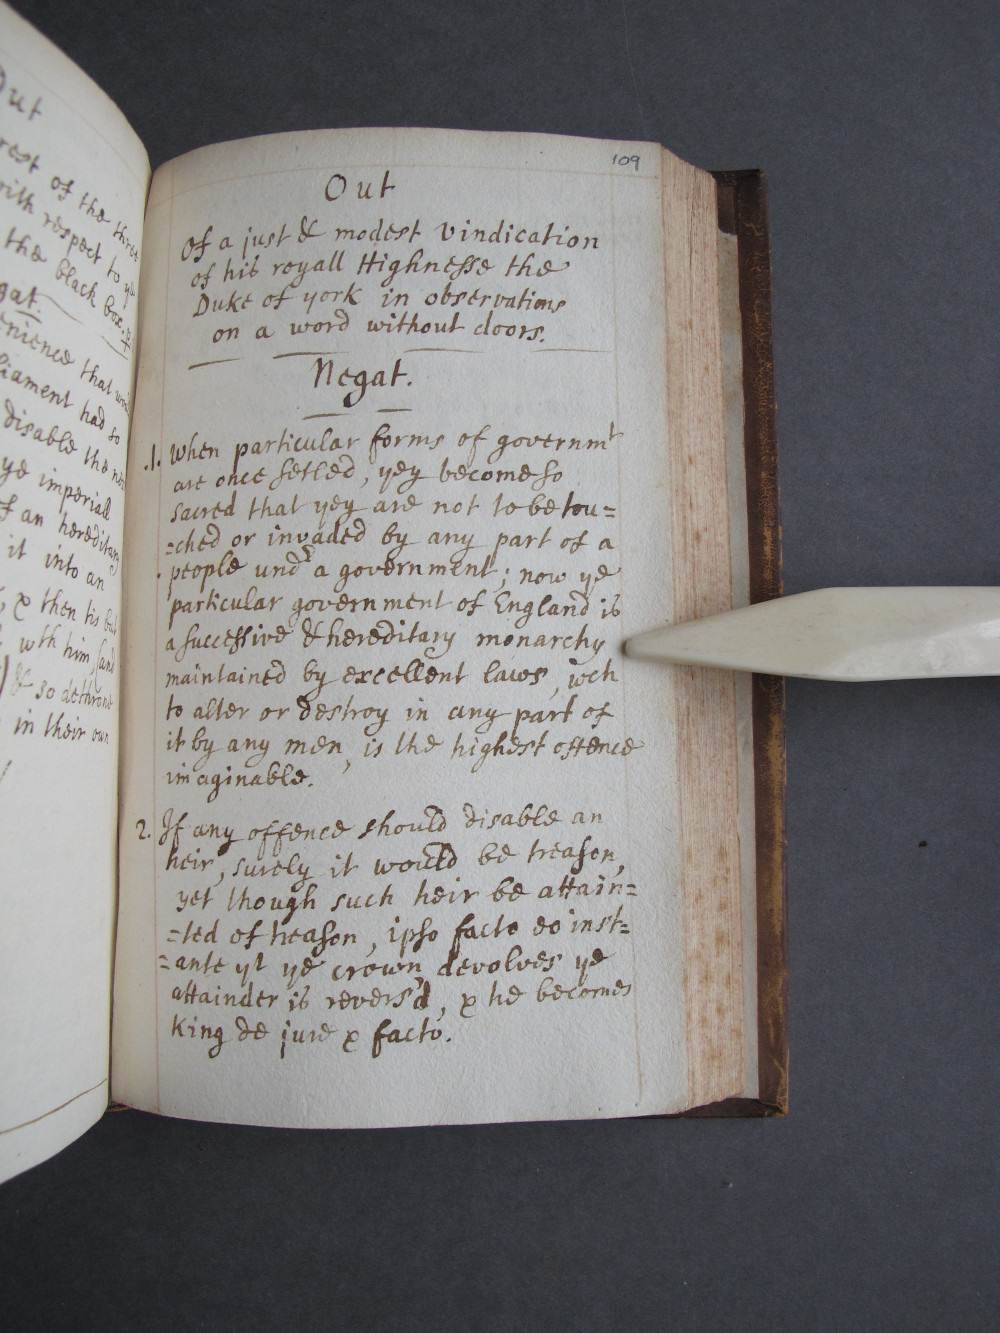 Out
rest of the three
with respect to ye
the black box.
gat.
enience that
liament had so
disable the
ye imperiall
of an hereditary
it into an
, & then tis but
wth him, (and
) & so dethrone
in their own
109
Out
Of a just & modest vindication
of his royall Highnesse the
Duke of york in observations
on a word without doors.
Negat.
.1. When particular forms of governmt
are once setled, yey become so
sacred that yey are not to be tou=
=ched or invaded by any part of a
people undr a government; now ye
particular government of England is
a successive & hereditary monarchy
maintained by excellent laws, wch
to alter or destroy in any part of
it by any men, is the highest offence
imaginable.
2. If any offence should disable an
heir, surely it would be treason,
yet though such heir be attain=
=ted of treason, ipso facto eo inst=
=ante yt ye crown devolves ye
attainder is revers'd, & he becomes
King de jure & facto.